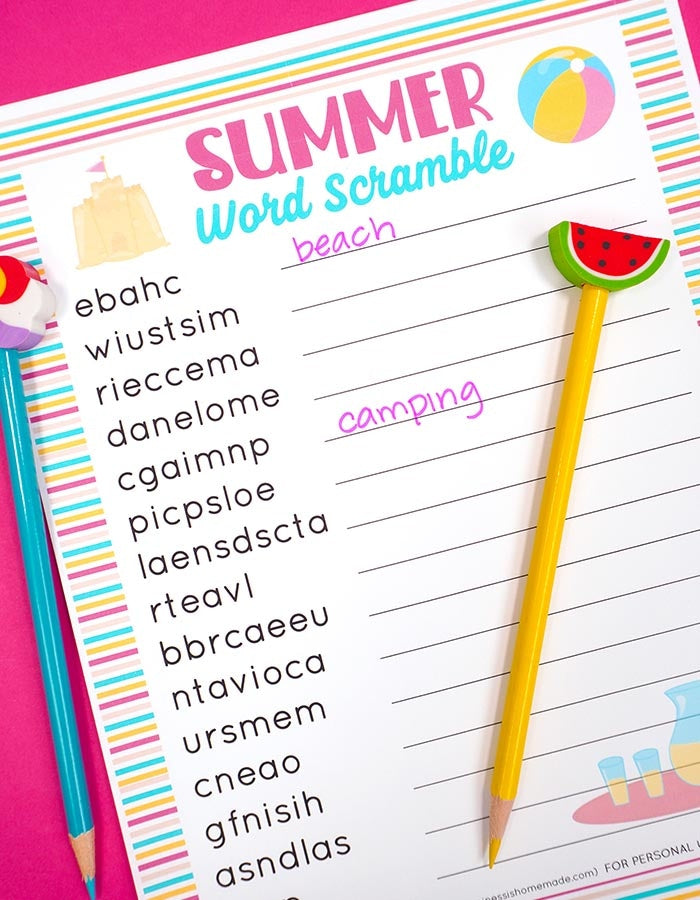 SUMMER
Word Scramble
ebahc beach
wiustsim
rieccema
danelome
cgaimnp camping
picpsloe
laensdscta
rteavl
bbrcaeeu
ntavioca
ursmem
cneao
gfnisih
asndlas
nessishomemade.com) FOR PERSONAL